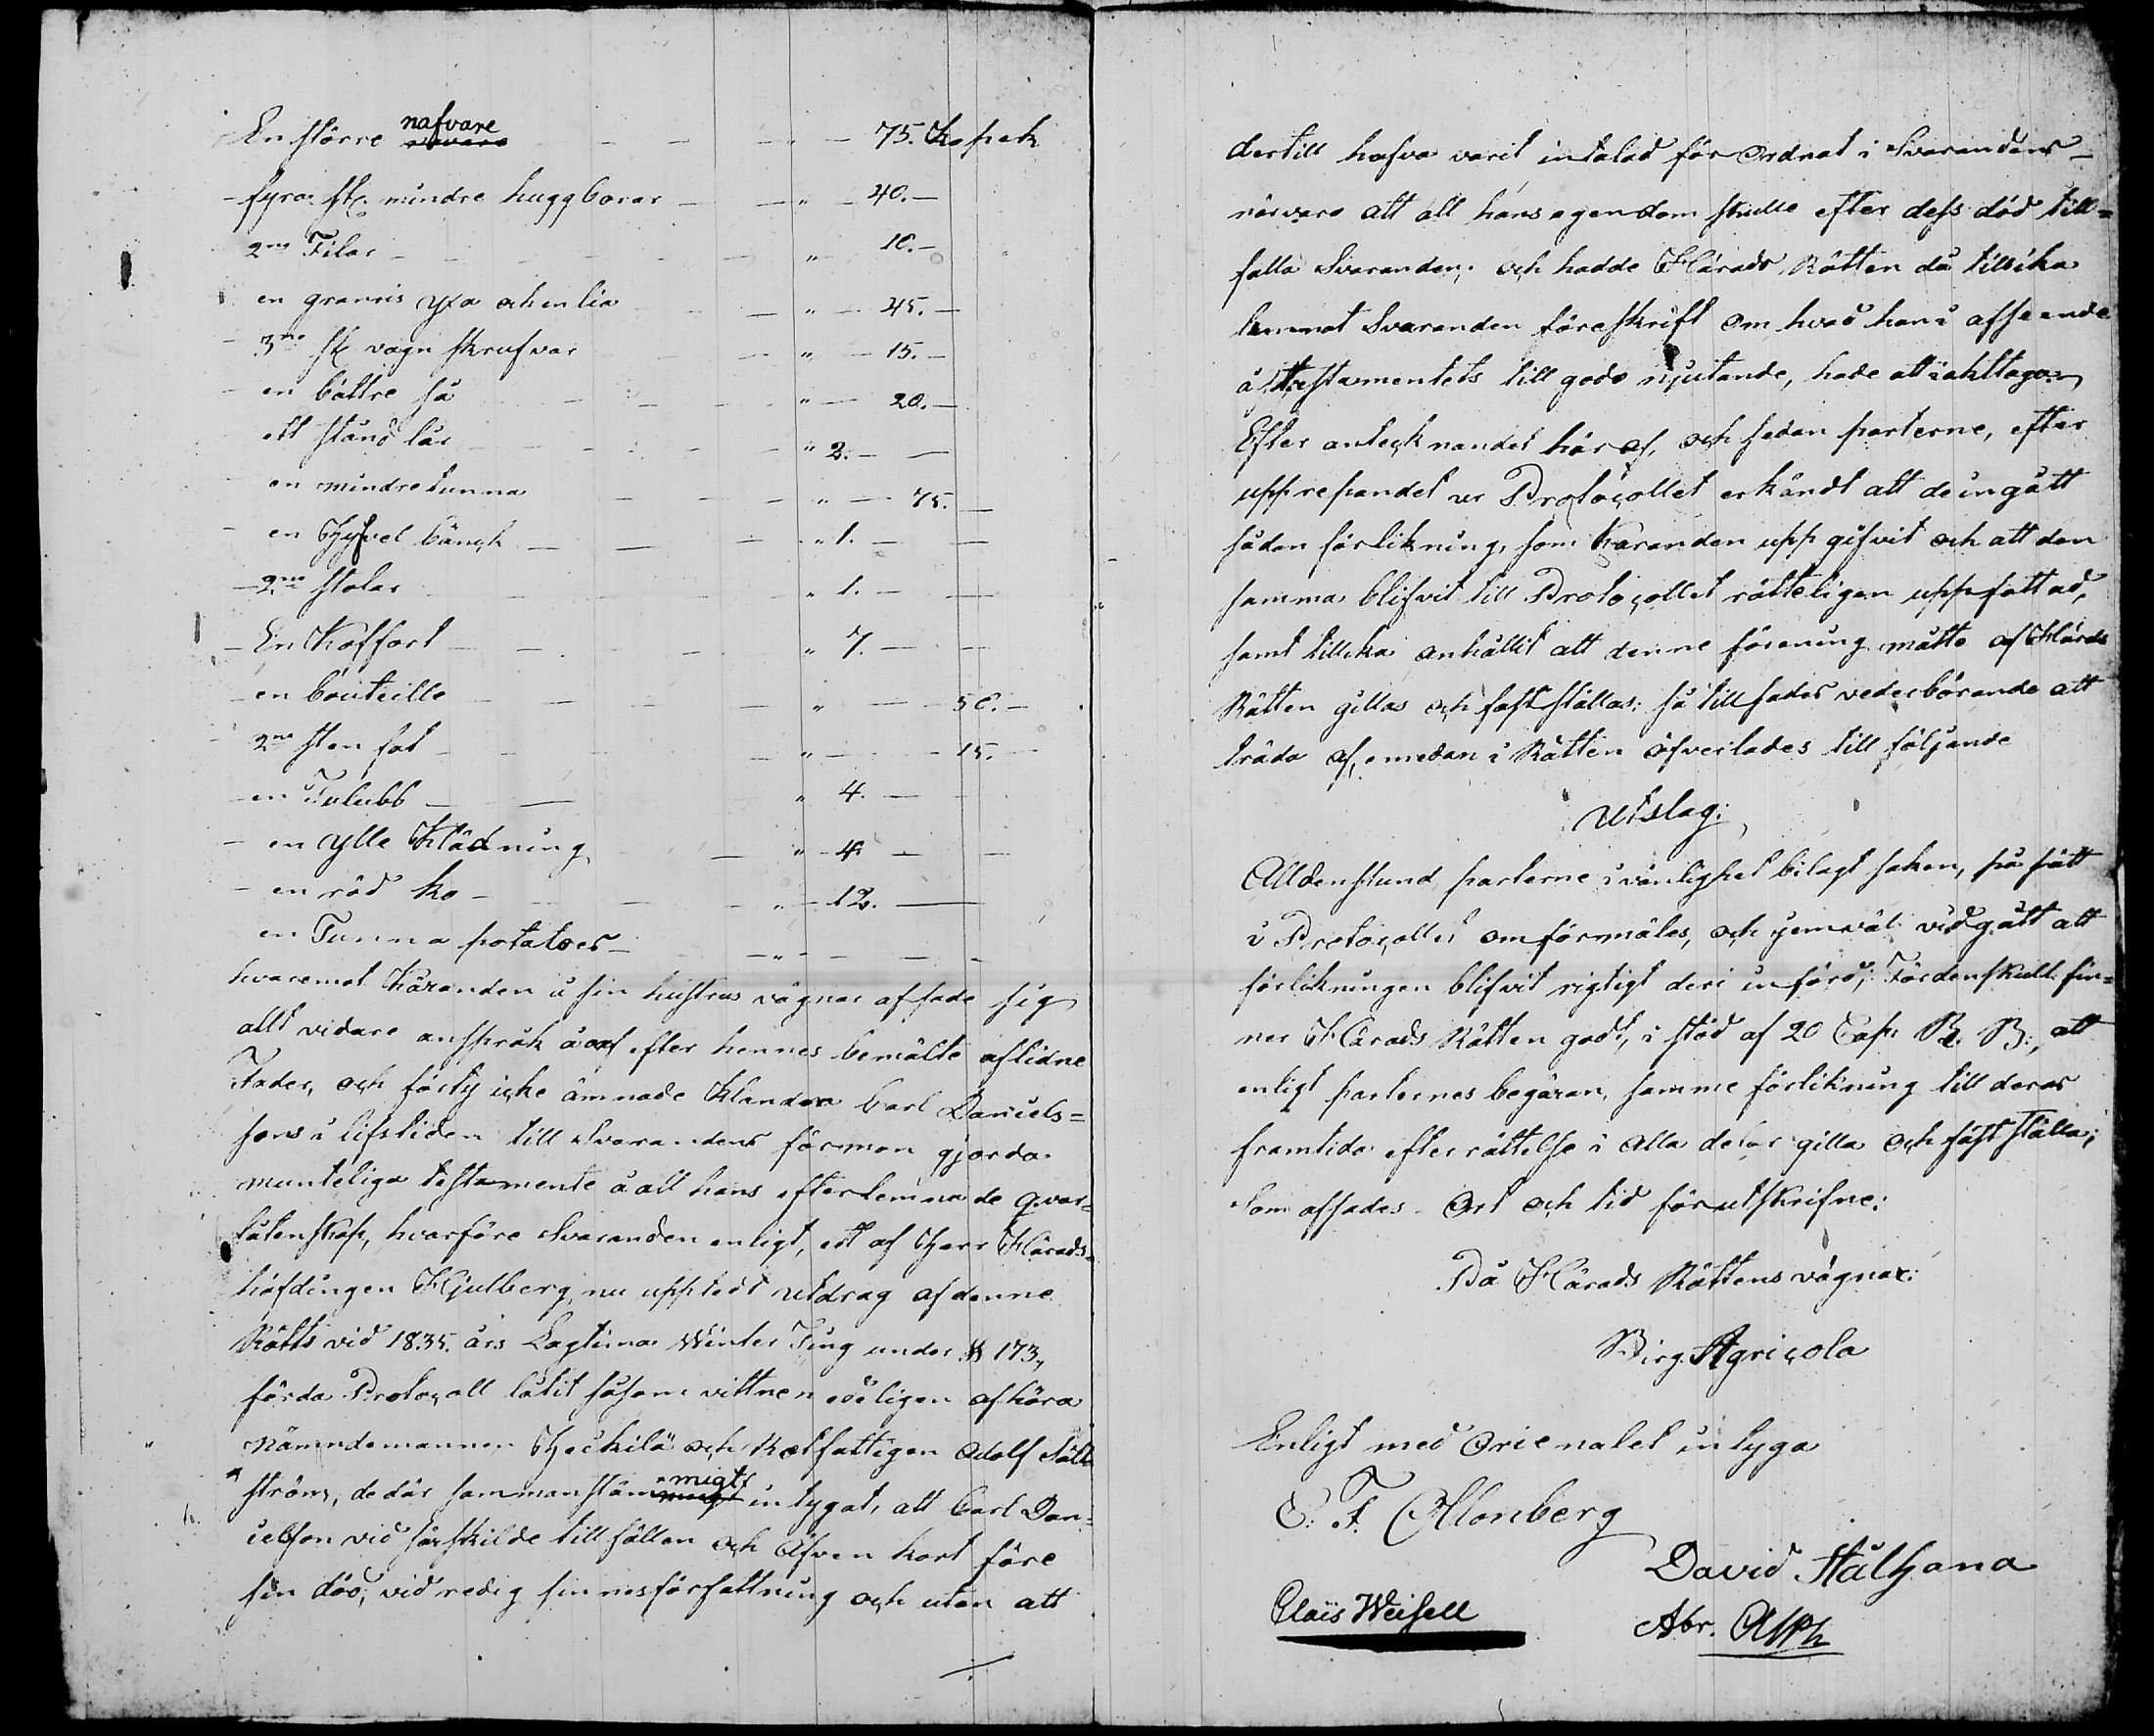 En större nafvare " 75. Kopek
fyra st. mindre huggborar " 40.
2ne Filar " 10.
en granris yxa och en lia " 45.
3ne st vagn skrufvar " 15.
en bättre så " 20.
ett stånd lår " 2.
en mindre tunna " 75.
en Hyfvel bänck " 1.
2ne stolar " 1.
En Koffort " 7.
en bouteille " 50.
2ne sten fat " 15.
en Tulubb " 4.
en ylle Klädning " 4.
en röd ko " 12.
en Tunna potatoes "
hvaremot Käranden å sin hustrus vägnar afsade sig
allt vidare anspråk å arf efter hennes bemälte aflidne
Fader, och förty icke ämnade klandra Carl Daniels=
sons i lifstiden till Svarandens förmon gjorda
munteliga testamente å all hans efterlemnade qvar=
låtenskap, hvarföre Svaranden enligt, ett af Herr Härads=
höfdingen Hjulberg nu uppledt utdrag af denne
Rätts vid 1835. års Lagtima Winter Ting under § 173,
förda Protocoll låtit såsom vittnen edeligen afhöra
Nämndemannen Heickilä och Rotfattigen Adolf Säll
ström, de där sammanstämmigt intygat, att Carl Dan=
ielson vid särskilde tillfällen och äfven kort före
sin död, vid redig sinnesförfattning och utan att
dertill hafva varit intalad förordnat i Svarandens
närvaro att all hans egendom skulle efter dess död till=
falla Svaranden; och hadde Härads Rätten då tillika
lemnat Svaranden föreskrift om hvad han i afseende
å testamentets till godo njutande, hade att iakttaga.
Efter antecknandet häraf, och sedan parterne, efter
upprepandet ur Protocollet erkändt att de ingått
sådan förlikning, som Käranden uppgifvit och att den
samma blifvit till Protocollet rätteligen uppfattad,
samt tillika anhållit att denne förening måtte af Härads
Rätten gillas och fastställas; så tillsades vederbörande att
träda af, emedan i Rätten öfverlades till följande
Utslag:
Alldenstund parterne i vänlighet bilagt saken, på sätt
i Protocollet omförmäles, och jemväl vidgått att
förlikningen blifvit rigtigt deri införd; Fördenskull fin=
ner Härads Rätten godt, i stöd af 20 Cap. R. B., att
enligt parternes begäran, samme förlikning till deras
framtida efterrättelse i alla delar gilla och fastställa;
Som afsades. Ort och tid förutskrifne.
På Härads Rättens vägnar:
Birg. Agricola
Enligt med Orienalet intyga
E. F. Ollonberg
David Stålhana
Claës Weisell
Abr. Alph